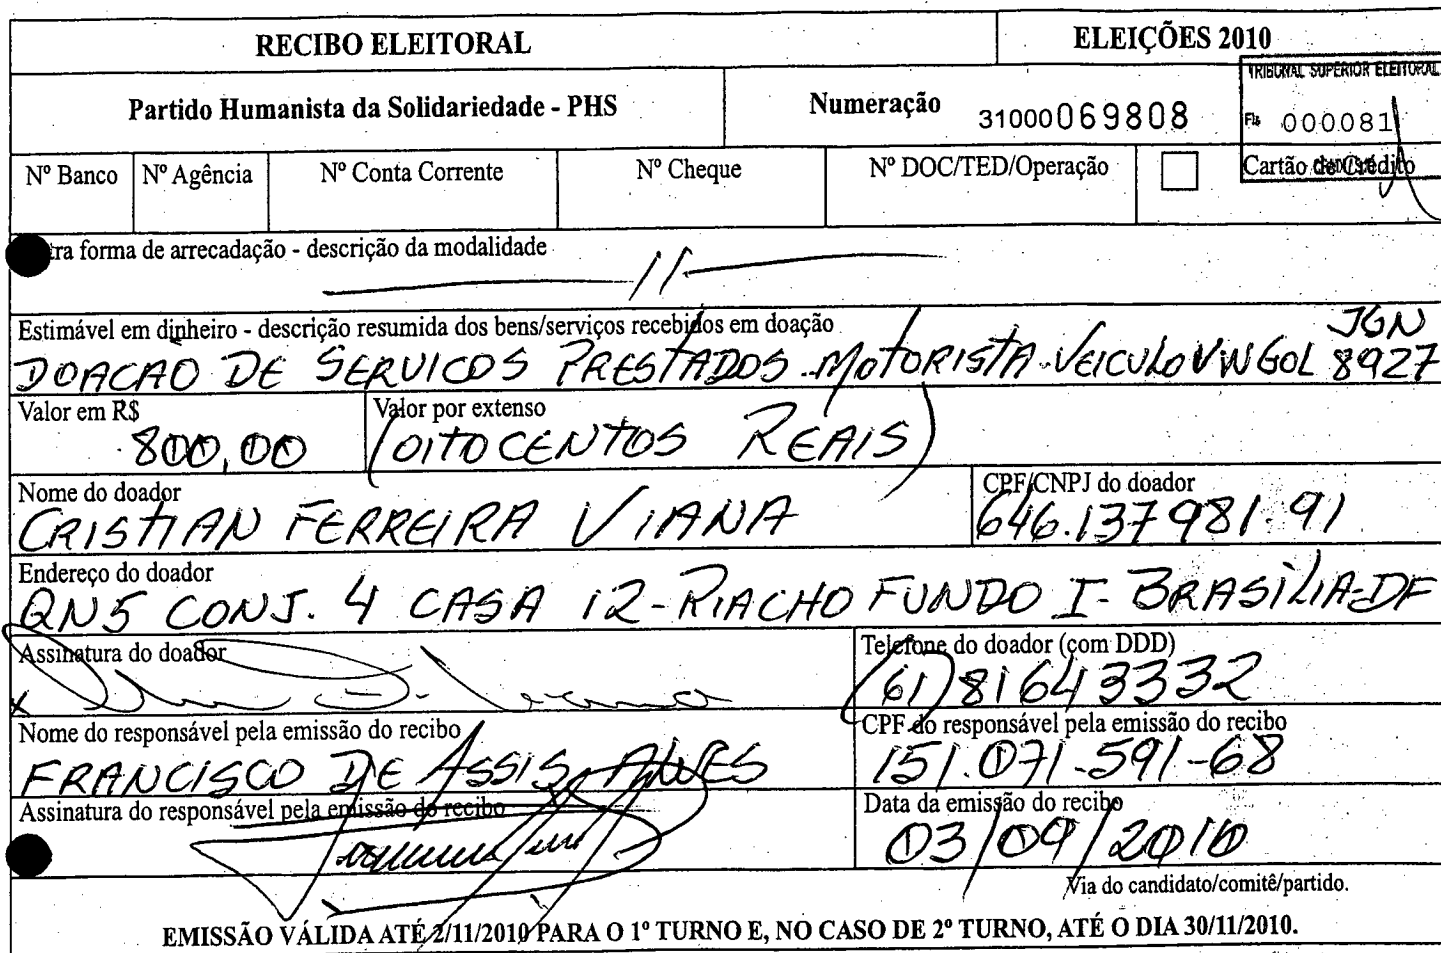 RECIBO ELEITORAL ELEIÇÕES 2010
TRIBUNAL SUPERIOR ELEITORAL
Partido Humanista da Solidariedade - PHS Numeração 31000069808 Fls 000081
Nº Banco Nº Agência Nº Conta Corrente Nº Cheque Nº DOC/TED/Operação Cartão de Crédito
tra forma de arrecadação - descrição da modalidade
Estimável em dinheiro - descrição resumida dos bens/serviços recebidos em doação JGN
DOACAO DE SERVICOS PRESTADOS MOTORISTA VEICULO VW GOL 8927
Valor em R$ Valor por extenso
800,00 (OITOCENTOS REAIS)
Nome do doador CPF/CNPJ do doador
CRISTIAN FERREIRA VIANA 646.137981-91
Endereço do doador
QN5 CONJ. 4 CASA 12-RIACHO FUNDO I-BRASÍLIA-DF
Assinatura do doador Telefone do doador (com DDD)
(61)81643332
Nome do responsável pela emissão do recibo CPF do responsável pela emissão do recibo
FRANCISCO DE ASSIS ALVES 151.071-591-68
Assinatura do responsável pela emissão do recibo Data da emissão do recibo
03/09/2010
Via do candidato/comitê/partido.
EMISSÃO VÁLIDA ATÉ 2/11/2010 PARA O 1º TURNO E, NO CASO DE 2º TURNO, ATÉ O DIA 30/11/2010.